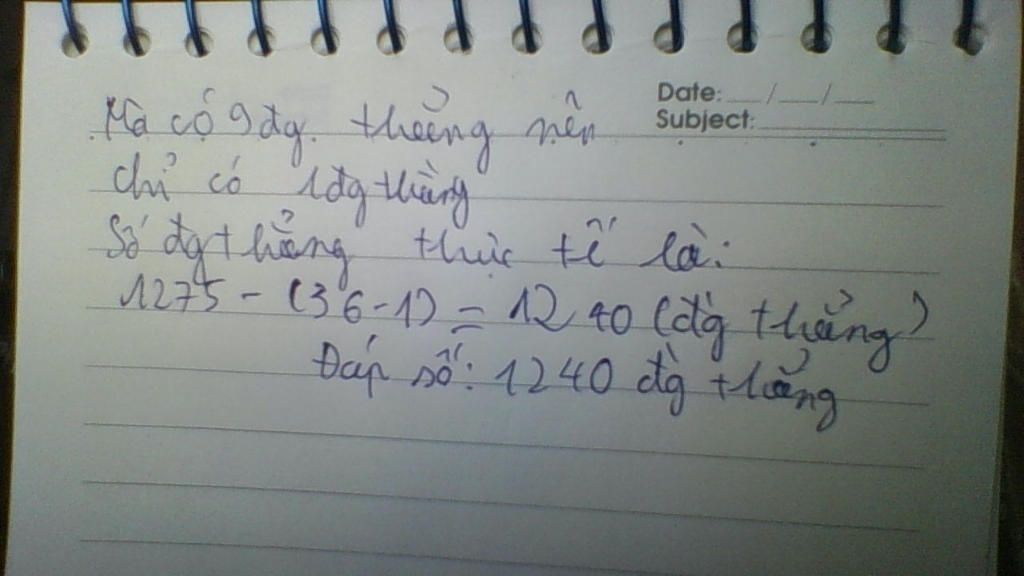 Date: __/__/__
Subject:
Mà có 9 đg. thẳng nên
chỉ có 1 đg thẳng
Số đg thẳng thực tế là:
1275 - (36-1) = 1240 (đg thẳng)
Đáp số: 1240 đg thẳng